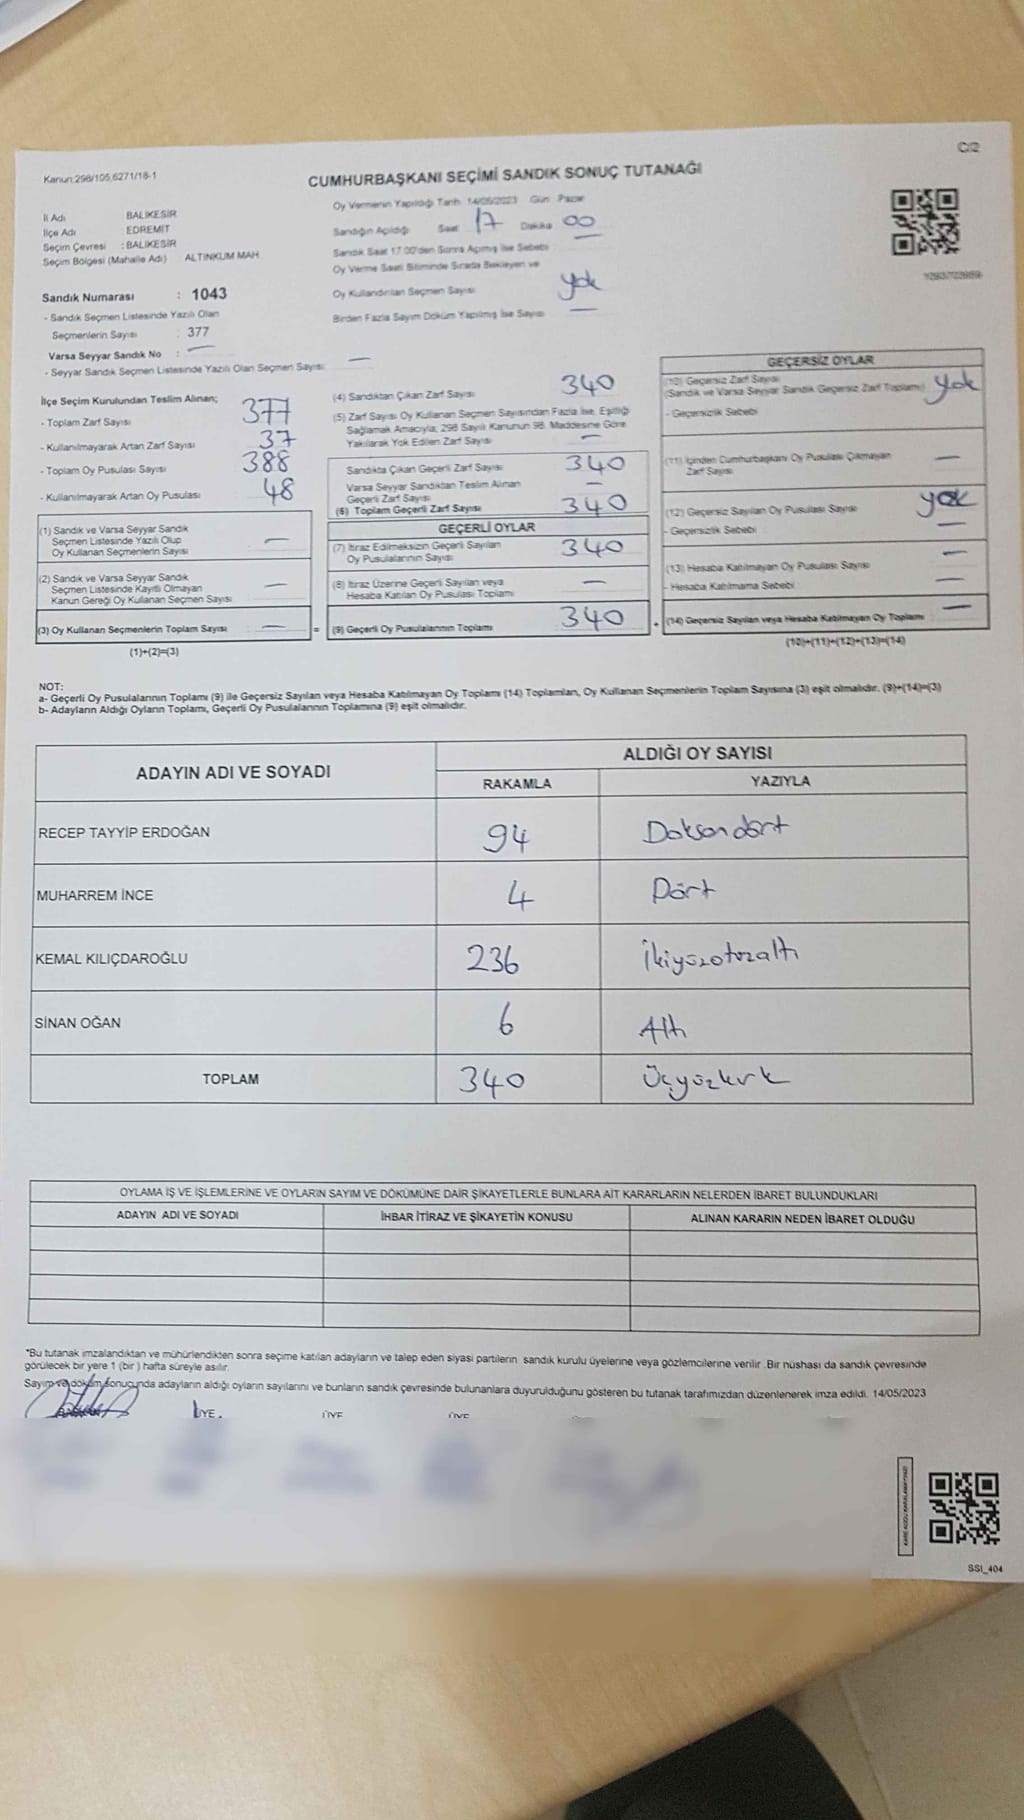 C/2
Kanun:298/105,6271/18-1
CUMHURBAŞKANI SEÇİMİ SANDIK SONUÇ TUTANAĞI
İl Adı BALIKESİR
İlçe Adı EDREMİT
Seçim Çevresi : BALIKESİR
Seçim Bölgesi (Mahalle Adı) ALTINKUM MAH.
Sandık Numarası : 1043
- Sandık Seçmen Listesinde Yazılı Olan
Seçmenlerin Sayısı : 377
Varsa Seyyar Sandık No : —
- Seyyar Sandık Seçmen Listesinde Yazılı Olan Seçmen Sayısı: —
Oy Vermenin Yapıldığı Tarih 14/05/2023 Gün Pazar
Sandığın Açıldığı Saat 17 Dakika 00
Sandık Saat 17.00'den Sonra Açılmış İse Sebebi —
Oy Verme Saati Bitiminde Sırada Bekleyen ve
Oy Kullandırılan Seçmen Sayısı yok
Birden Fazla Sayım Döküm Yapılmış İse Sayısı —
İlçe Seçim Kurulundan Teslim Alınan;
- Toplam Zarf Sayısı 377
- Kullanılmayarak Artan Zarf Sayısı 37
- Toplam Oy Pusulası Sayısı 388
- Kullanılmayarak Artan Oy Pusulası 48
(1) Sandık ve Varsa Seyyar Sandık
Seçmen Listesinde Yazılı Olup
Oy Kullanan Seçmenlerin Sayısı —
(2) Sandık ve Varsa Seyyar Sandık
Seçmen Listesinde Kayıtlı Olmayan
Kanun Gereği Oy Kullanan Seçmen Sayısı —
(3) Oy Kullanan Seçmenlerin Toplam Sayısı —
(1)+(2)=(3)
(4) Sandıktan Çıkan Zarf Sayısı 340
(5) Zarf Sayısı Oy Kullanan Seçmen Sayısından Fazla İse, Eşitliği
Sağlamak Amacıyla, 298 Sayılı Kanunun 98. Maddesine Göre
Yakılarak Yok Edilen Zarf Sayısı —
Sandıkta Çıkan Geçerli Zarf Sayısı 340
Varsa Seyyar Sandıktan Teslim Alınan
Geçerli Zarf Sayısı —
(6) Toplam Geçerli Zarf Sayısı 340
GEÇERLİ OYLAR
(7) İtiraz Edilmeksizin Geçerli Sayılan
Oy Pusulalarının Sayısı 340
(8) İtiraz Üzerine Geçerli Sayılan veya
Hesaba Katılan Oy Pusulası Toplamı —
= (9) Geçerli Oy Pusulalarının Toplamı 340
GEÇERSİZ OYLAR
(10) Geçersiz Zarf Sayısı
(Sandık ve Varsa Seyyar Sandık Geçersiz Zarf Toplamı) yok
- Geçersizlik Sebebi
(11) İçinden Cumhurbaşkanı Oy Pusulası Çıkmayan
Zarf Sayısı —
(12) Geçersiz Sayılan Oy Pusulası Sayısı yok
- Geçersizlik Sebebi —
(13) Hesaba Katılmayan Oy Pusulası Sayısı —
- Hesaba Katılmama Sebebi —
+ (14) Geçersiz Sayılan veya Hesaba Katılmayan Oy Toplamı —
(10)+(11)+(12)+(13)=(14)
NOT:
a- Geçerli Oy Pusulalarının Toplamı (9) ile Geçersiz Sayılan veya Hesaba Katılmayan Oy Toplamı (14) Toplamları, Oy Kullanan Seçmenlerin Toplam Sayısına (3) eşit olmalıdır. (9)+(14)=(3)
b- Adayların Aldığı Oyların Toplamı, Geçerli Oy Pusulalarının Toplamına (9) eşit olmalıdır.
ADAYIN ADI VE SOYADI ALDIĞI OY SAYISI
RAKAMLA YAZIYLA
RECEP TAYYİP ERDOĞAN 94 Doksandört
MUHARREM İNCE 4 Dört
KEMAL KILIÇDAROĞLU 236 İkiyüzotuzaltı
SİNAN OĞAN 6 Altı
TOPLAM 340 Üçyüzkırk
OYLAMA İŞ VE İŞLEMLERİNE VE OYLARIN SAYIM VE DÖKÜMÜNE DAİR ŞİKAYETLERLE BUNLARA AİT KARARLARIN NELERDEN İBARET BULUNDUKLARI
ADAYIN ADI VE SOYADI İHBAR İTİRAZ VE ŞİKAYETİN KONUSU ALINAN KARARIN NEDEN İBARET OLDUĞU
*Bu tutanak imzalandıktan ve mühürlendikten sonra seçime katılan adayların ve talep eden siyasi partilerin sandık kurulu üyelerine veya gözlemcilerine verilir. Bir nüshası da sandık çevresinde
görülecek bir yere 1 (bir) hafta süreyle asılır.
Sayım ve döküm sonucunda adayların aldığı oyların sayılarını ve bunların sandık çevresinde bulunanlara duyurulduğunu gösteren bu tutanak tarafımızdan düzenlenerek imza edildi. 14/05/2023
BAŞKAN ÜYE ÜYE ÜYE
SSI_404